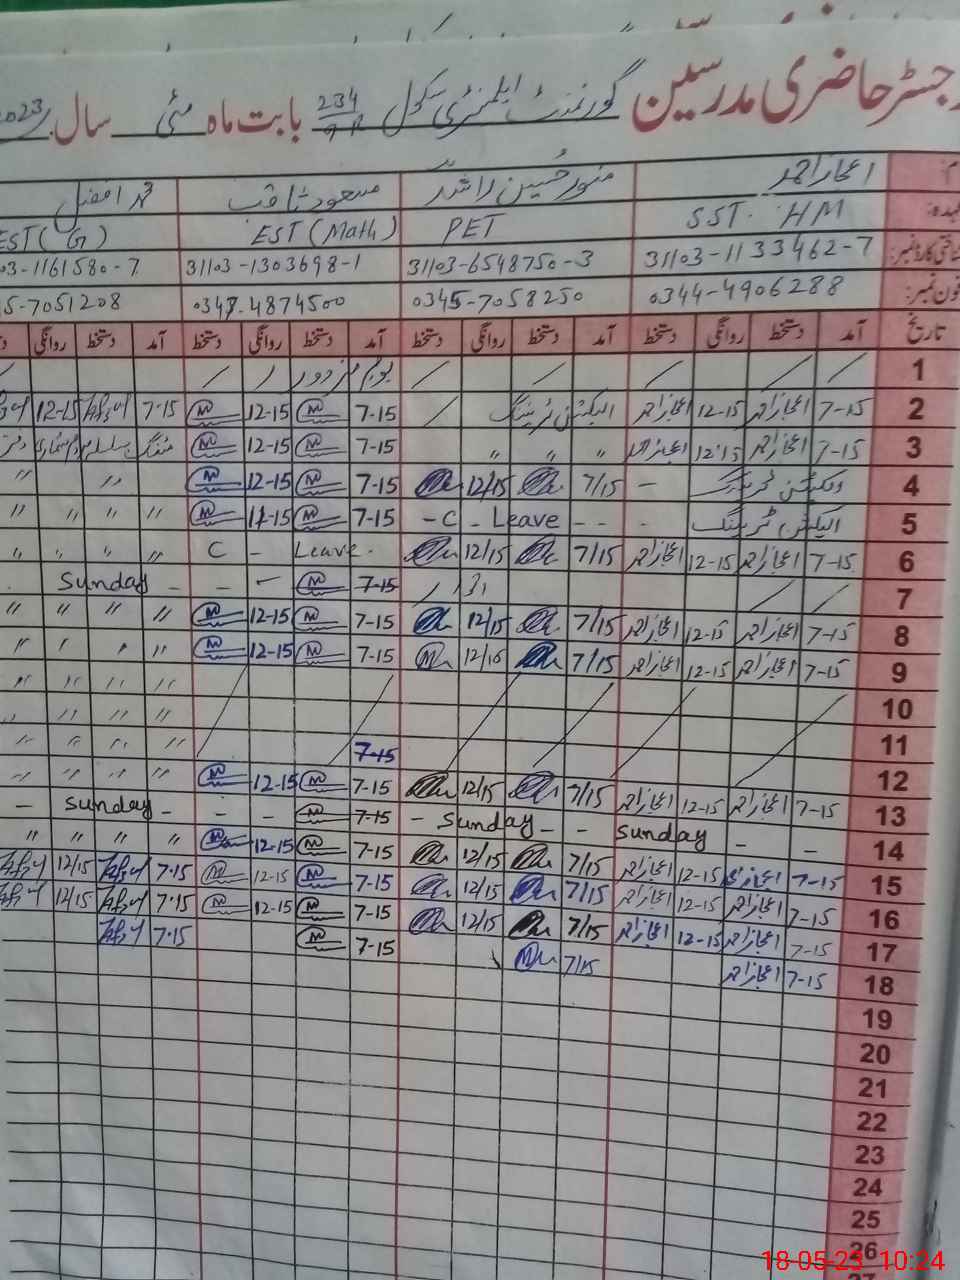 رجسٹر حاضری مدرسین گورنمنٹ ایلمنٹری سکول 234/9R بابت ماہ مئی سال 2023
نام: اعجاز احمد منور حسین راشد مسعود ثاقب محمد افضل
عہدہ: SST. HM PET EST (Math) EST (G)
شناختی کارڈ نمبر: 31103-1133462-7 31103-6548750-3 31103-1303698-1 03-1161580-7
فون نمبر: 0344-4906288 0345-7058250 0347-4874500 5-7051208
تاریخ آمد دستخط روانگی دستخط آمد دستخط روانگی دستخط آمد دستخط روانگی دستخط آمد دستخط روانگی
1 یوم مزدور
2 7-15 اعجاز احمد 12-15 اعجاز احمد الیکشن ٹریننگ 7-15 12-15 7-15 12-15
3 7-15 اعجاز احمد 12-15 اعجاز احمد " " " 7-15 12-15
4 الیکشن ٹریننگ - 7/15 12/15 7-15 12-15 "
5 الیکشن ٹریننگ - - - Leave - C - 7-15 12-15 " " " "
6 7-15 اعجاز احمد 12-15 اعجاز احمد 7/15 12/15 Leave - C " " " "
7 7-15 - - Sunday
8 7-15 اعجاز احمد 12-15 اعجاز احمد 7/15 12/15 7-15 12-15 " " " "
9 7-15 اعجاز احمد 12-15 اعجاز احمد 7/15 12/15 7-15 12-15 " " " "
10 " " " "
11 " " " "
12 7-15 " " " "
13 7-15 اعجاز احمد 12-15 اعجاز احمد 7/15 12/15 7-15 12-15 " " " "
14 - - Sunday - - Sunday - 7-15 - - - Sunday -
15 7-15 اعجاز احمد 12-15 اعجاز احمد 7/15 12/15 7-15 12-15 " " " "
16 7-15 اعجاز احمد 12-15 اعجاز احمد 7/15 12/15 7-15 12-15 7-15 12/15
17 7-15 اعجاز احمد 12-15 اعجاز احمد 7/15 12/15 7-15 12-15 7-15 12/15
18 7-15 اعجاز احمد 7/15 7-15 7-15
19
20
21
22
23
24
25
26
27
18-05-23 10:24